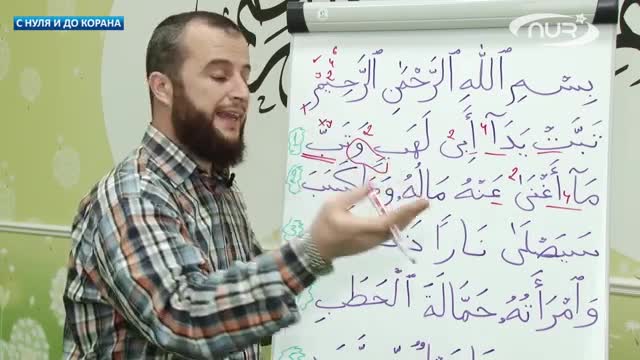 С НУЛЯ И ДО КОРАНА
NUR
بِسْمِ ٱللَّهِ ٱلرَّحْمَٰنِ ٱلرَّحِيمِ
تَبَّتْ يَدَآ أَبِى لَهَبٍ وَتَبَّ
مَآ أَغْنَىٰ عَنْهُ مَالُهُۥ وَمَا كَسَبَ
سَيَصْلَىٰ نَارًا
وَٱمْرَأَتُهُۥ حَمَّالَةَ ٱلْحَطَبِ